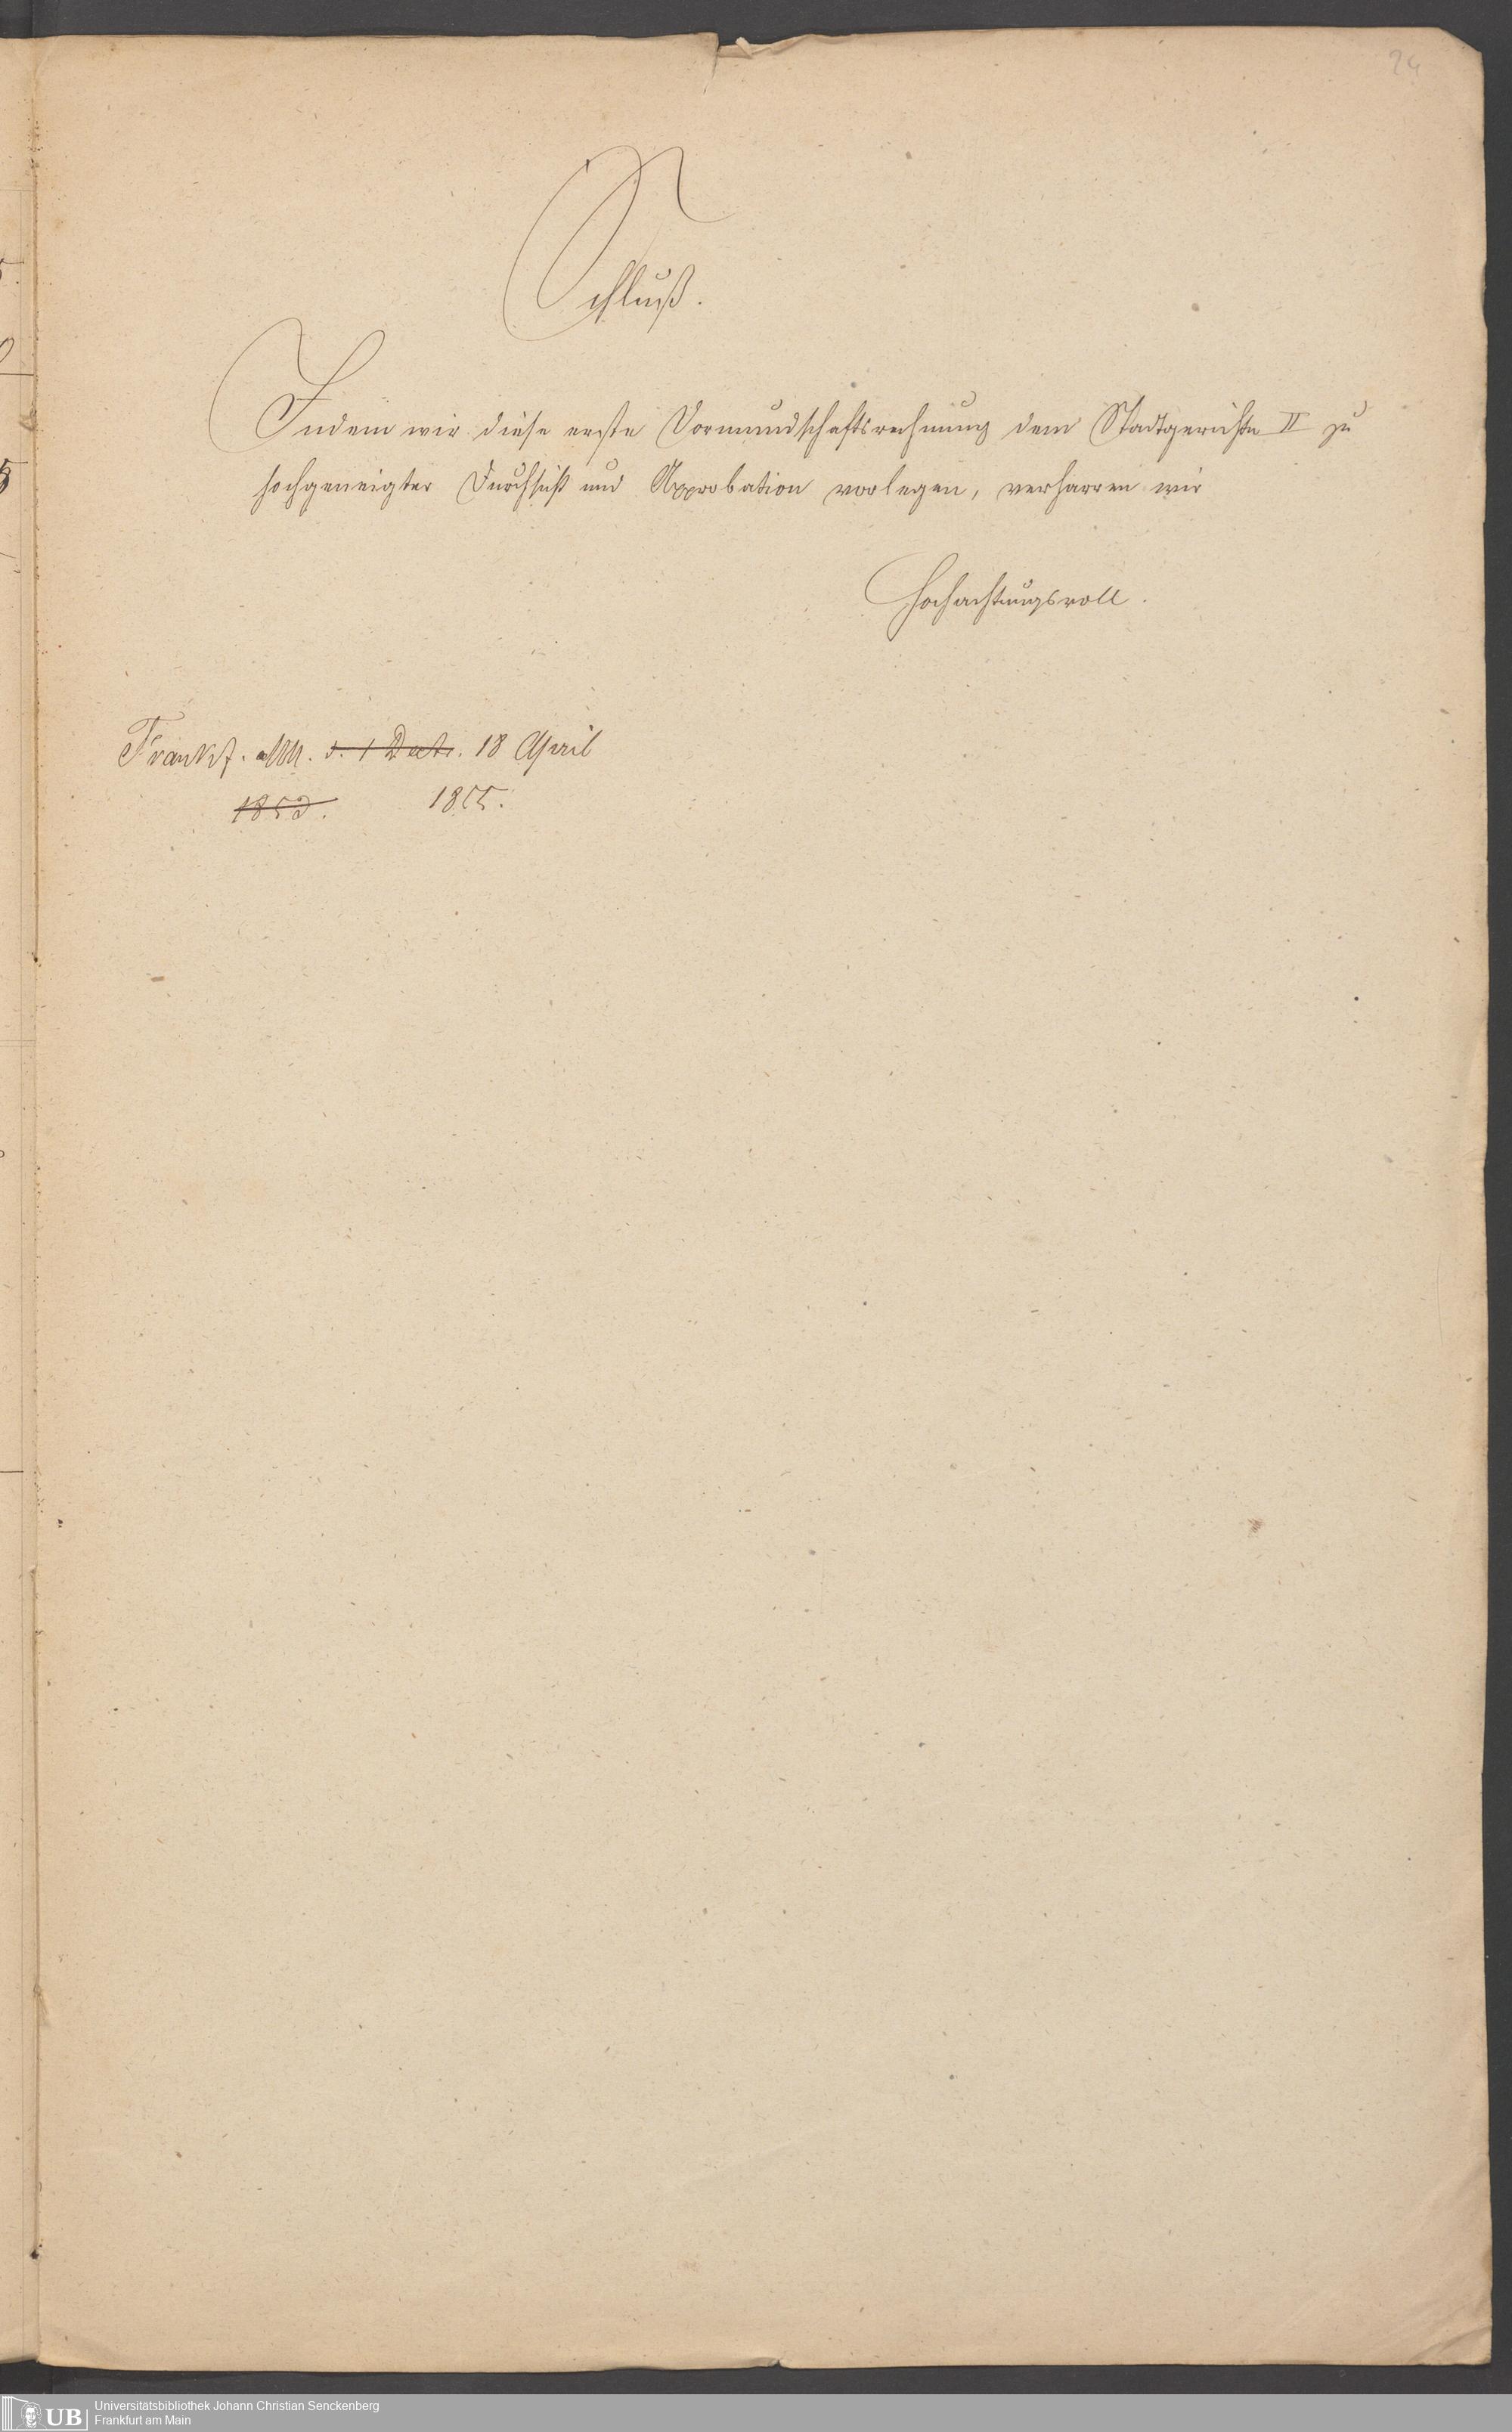 24
Schluß.
Indem wir diese erste Vormundschaftsrechnung dem Stadtgerichte II zu
hochgeneigter Durchsicht und Approbation vorlegen, verharren wir
Hochachtungsvoll.
Frankf. a/M. d. 1 Dect. 18 April
1852. 1855.
UB Universitätsbibliothek Johann Christian Senckenberg
Frankfurt am Main